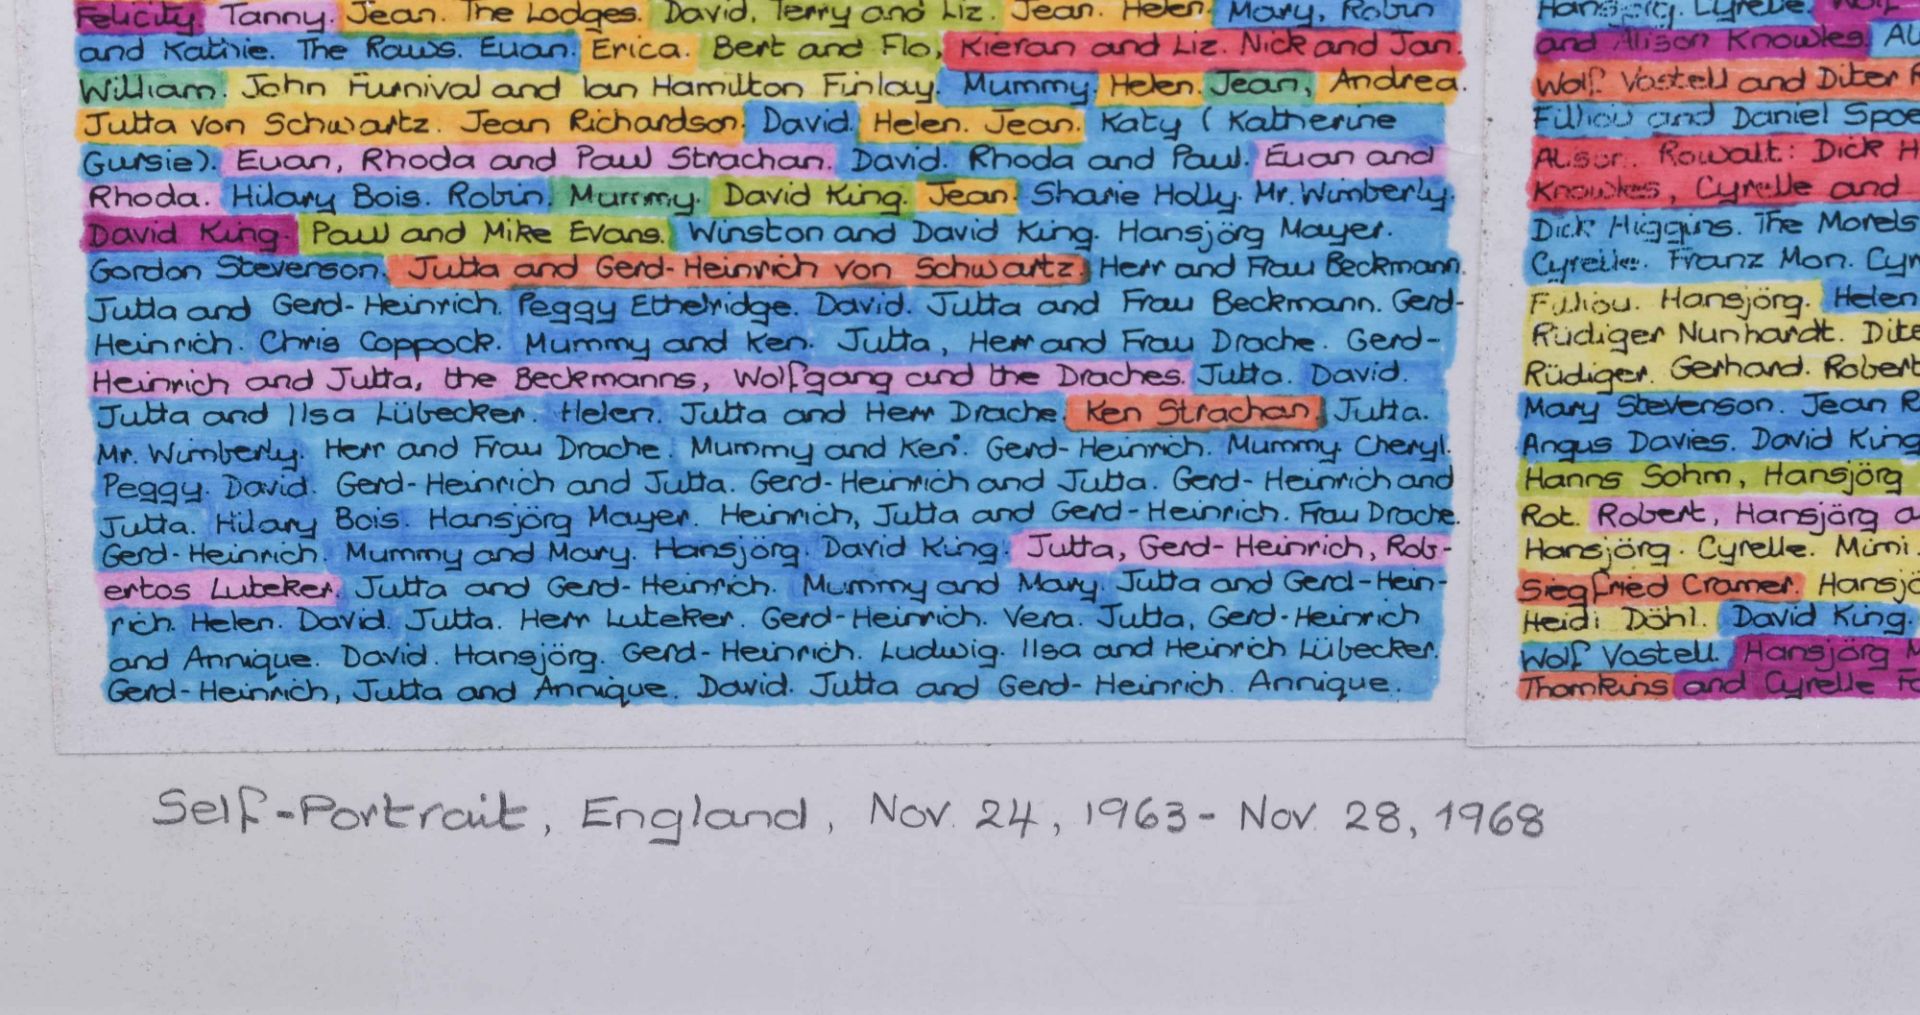 Felicity. Tanny. Jean. The Lodges. David, Terry and Liz. Jean. Helen. Mary, Robin
and Kathie. The Raws. Euan. Erica. Bert and Flo, Kieran and Liz. Nick and Jan.
William. John Furnival and Ian Hamilton Finlay. Mummy. Helen. Jean, Andrea.
Jutta von Schwartz. Jean Richardson. David. Helen. Jean. Katy (Katherine
Gursie). Euan, Rhoda and Paul Strachan. David. Rhoda and Paul. Euan and
Rhoda. Hilary Bois. Robin. Mummy. David King. Jean. Sharie Holly. Mr. Wimberly.
David King. Paul and Mike Evans. Winston and David King. Hansjörg Mayer.
Gordon Stevenson. Jutta and Gerd-Heinrich von Schwartz. Herr and Frau Beckmann.
Jutta and Gerd-Heinrich. Peggy Ethelridge. David. Jutta and Frau Beckmann. Gerd-
Heinrich. Chris Coppock. Mummy and Ken. Jutta, Herr and Frau Drache. Gerd-
Heinrich and Jutta, the Beckmanns, Wolfgang and the Draches. Jutta. David.
Jutta and Ilsa Lübecker. Helen. Jutta and Herr Drache. Ken Strachan. Jutta.
Mr. Wimberly. Herr and Frau Drache. Mummy and Ken. Gerd-Heinrich. Mummy. Cheryl.
Peggy. David. Gerd-Heinrich and Jutta. Gerd-Heinrich and Jutta. Gerd-Heinrich and
Jutta. Hilary Bois. Hansjörg Mayer. Heinrich, Jutta and Gerd-Heinrich. Frau Drache.
Gerd-Heinrich. Mummy and Mary. Hansjörg. David King. Jutta, Gerd-Heinrich, Rob-
ertos Luteker. Jutta and Gerd-Heinrich. Mummy and Mary. Jutta and Gerd-Hein-
rich. Helen. David. Jutta. Herr Luteker. Gerd-Heinrich. Vera. Jutta, Gerd-Heinrich
and Annique. David. Hansjörg. Gerd-Heinrich. Ludwig. Ilsa and Heinrich Lübecker.
Gerd-Heinrich, Jutta and Annique. David. Jutta and Gerd-Heinrich. Annique.
Self-Portrait, England, Nov. 24, 1963 - Nov 28, 1968
Hansjörg. Cyrelle. Wolf
and Alison Knowles.
Wolf Vostell and Diter
Filliou and Daniel
Alison. Rowalt: Dick
Knowles, Cyrelle and
Dick Higgins. The Morels
Cyrelle. Franz Mon.
Filliou. Hansjörg. Helen
Rüdiger Nunhardt.
Rüdiger. Gerhard. Robert
Mary Stevenson. Jean
Angus Davies. David King
Hanns Sohm, Hansjörg
Rot. Robert, Hansjörg
Hansjörg. Cyrelle. Mimi.
Siegfried Cramer.
Heidi Döhl. David King.
Wolf Vostell. Hansjörg
Thomkins and Cyrelle